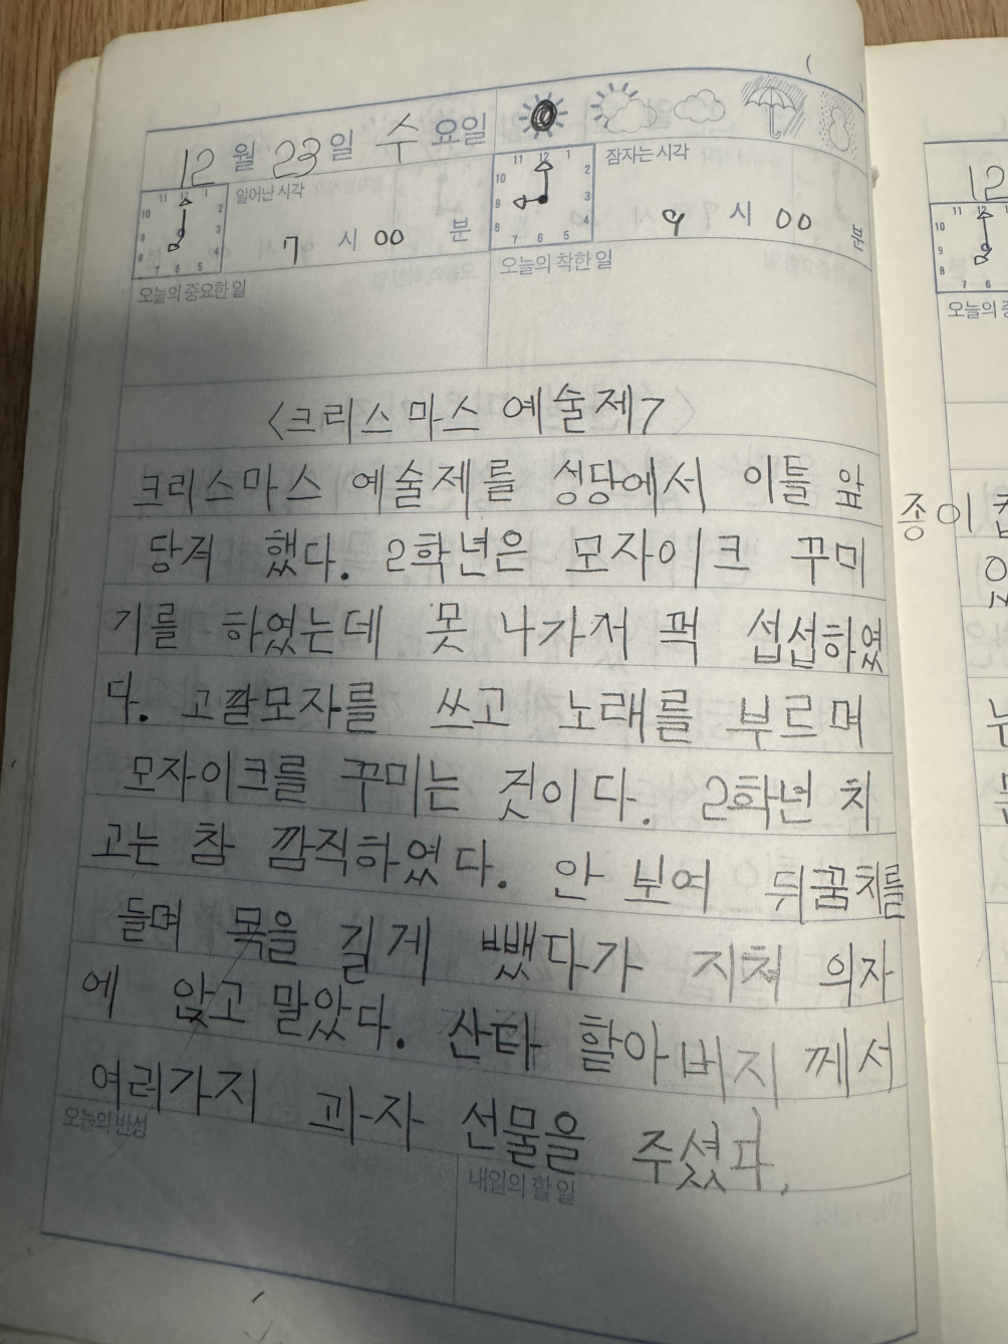 12월 23일 수요일
일어난시각 잠자는시각
7시 00분 9시 00분
오늘의 중요한 일 오늘의 착한 일
<크리스마스 예술제7
크리스마스 예술제를 성당에서 이틀 앞
당겨 했다. 2학년은 모자이크 꾸미
기를 하였는데 못 나가저 꽉 섭섭하였
다. 고깔모자를 쓰고 노래를 부르며
모자이크를 꾸미는 것이다. 2학년 치
고는 참 깜직하였다. 안 보여 뒤꿈치를
들며 목을 길게 뺐다가 지쳐 의자
에 앉고 말았다. 산타 할아버지 께서
여러가지 과자 선물을 주셨다.
오늘의 반성 내일의 할 일
12
오늘의 중
종이컵